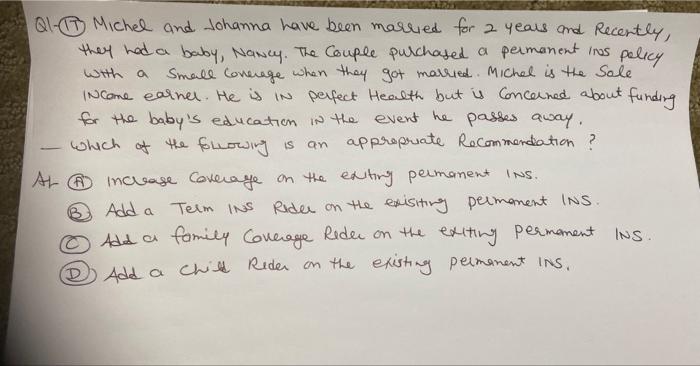 Q1-(17) Michel and Johanna have been married for 2 years and Recently,
they had a baby, Nancy. The Couple purchased a permanent ins policy
with a small Coverage when they got married. Michel is the Sole
INCome earner. He is IN perfect Health but is Concerned about funding
for the baby's education IN the event he passes away.
— which of the following is an appropriate Recommendation ?
A1- (A) increase Coverage on the exiting permanent INS.
(B) Add a Term INS Rider on the exisiting permanent INS.
(C) Add a family Coverage Rider on the exiting permanent INS.
(D) Add a child Rider on the existing permanent INS.